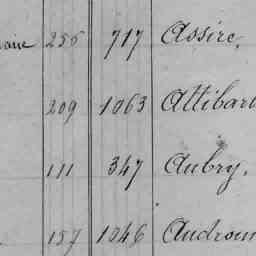 255 717 Assire,
209 1063 Attibart
111 347 Aubry,
157 1046 Androu